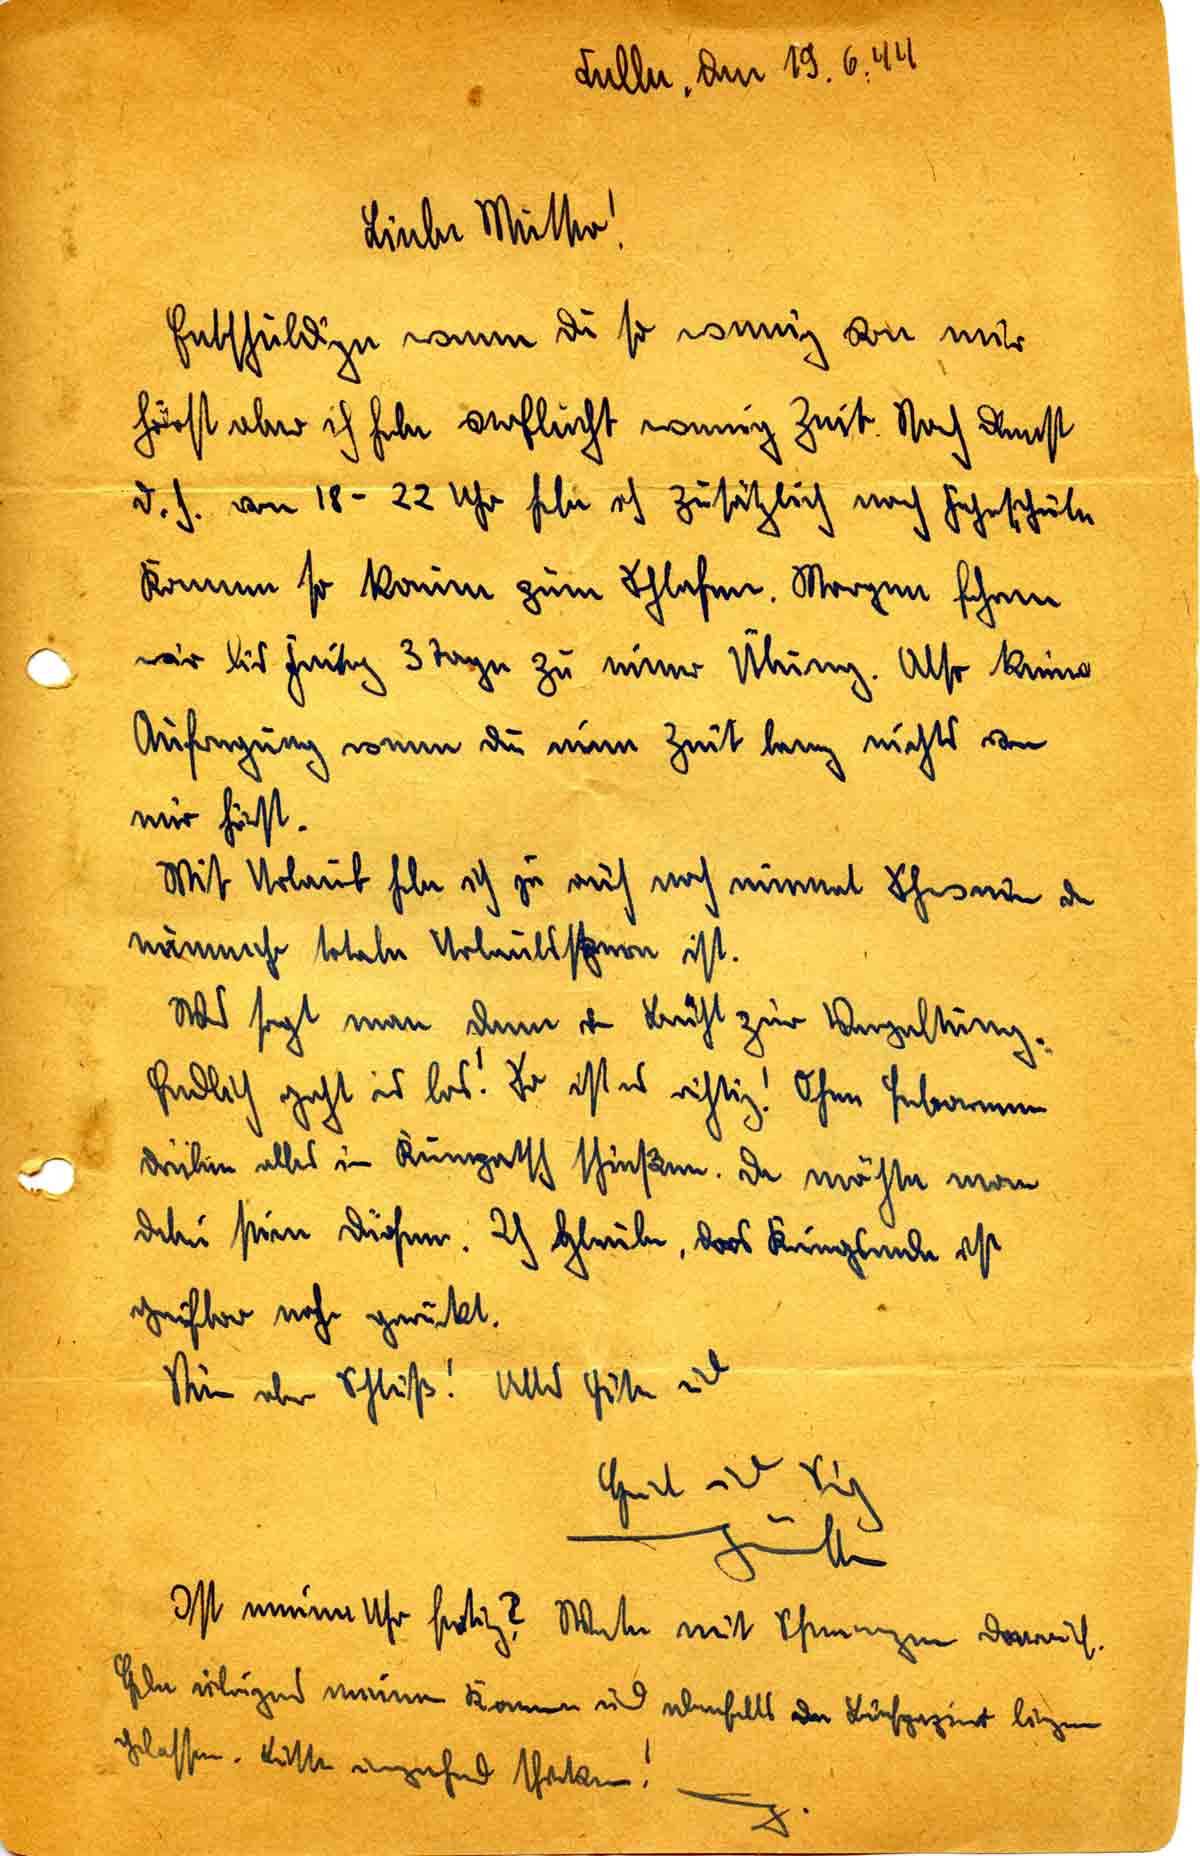 den 19.6.44
Liebe Mutter!
Entschuldige wenn du so wenig von mir
hörst aber ich habe verflucht wenig Zeit. Nach Dienst
d.h. von 18 - 22 Uhr habe ich zusätzlich noch Fahrschule
komme so kaum zum Schlafen. Morgen fahren
wir bis 3 Tage zu einer Übung. Also keine
Aufregung wenn du eine Zeit lang nichts von
mir hörst.
Mit Urlaub habe ich ja auch noch einmal da
nämlich totale Urlaubssperre ist.
Was sagt man denn zur Vergeltung.
Endlich geht es los! So ist es richtig! Ohne Erbarmen
drüben alles in schießen. Da möchte man
dabei sein dürfen. Ich glaube, das Kriegsende ist
greifbar nahe gerückt.
Nun aber Schluß! Alles Gute und
und Sieg
Ist meine Uhr fertig? Warte mit Schmerzen darauf.
Habe übrigens meinen Kamm und ebenfalls das liegen
gelassen. Bitte umgehend schicken!